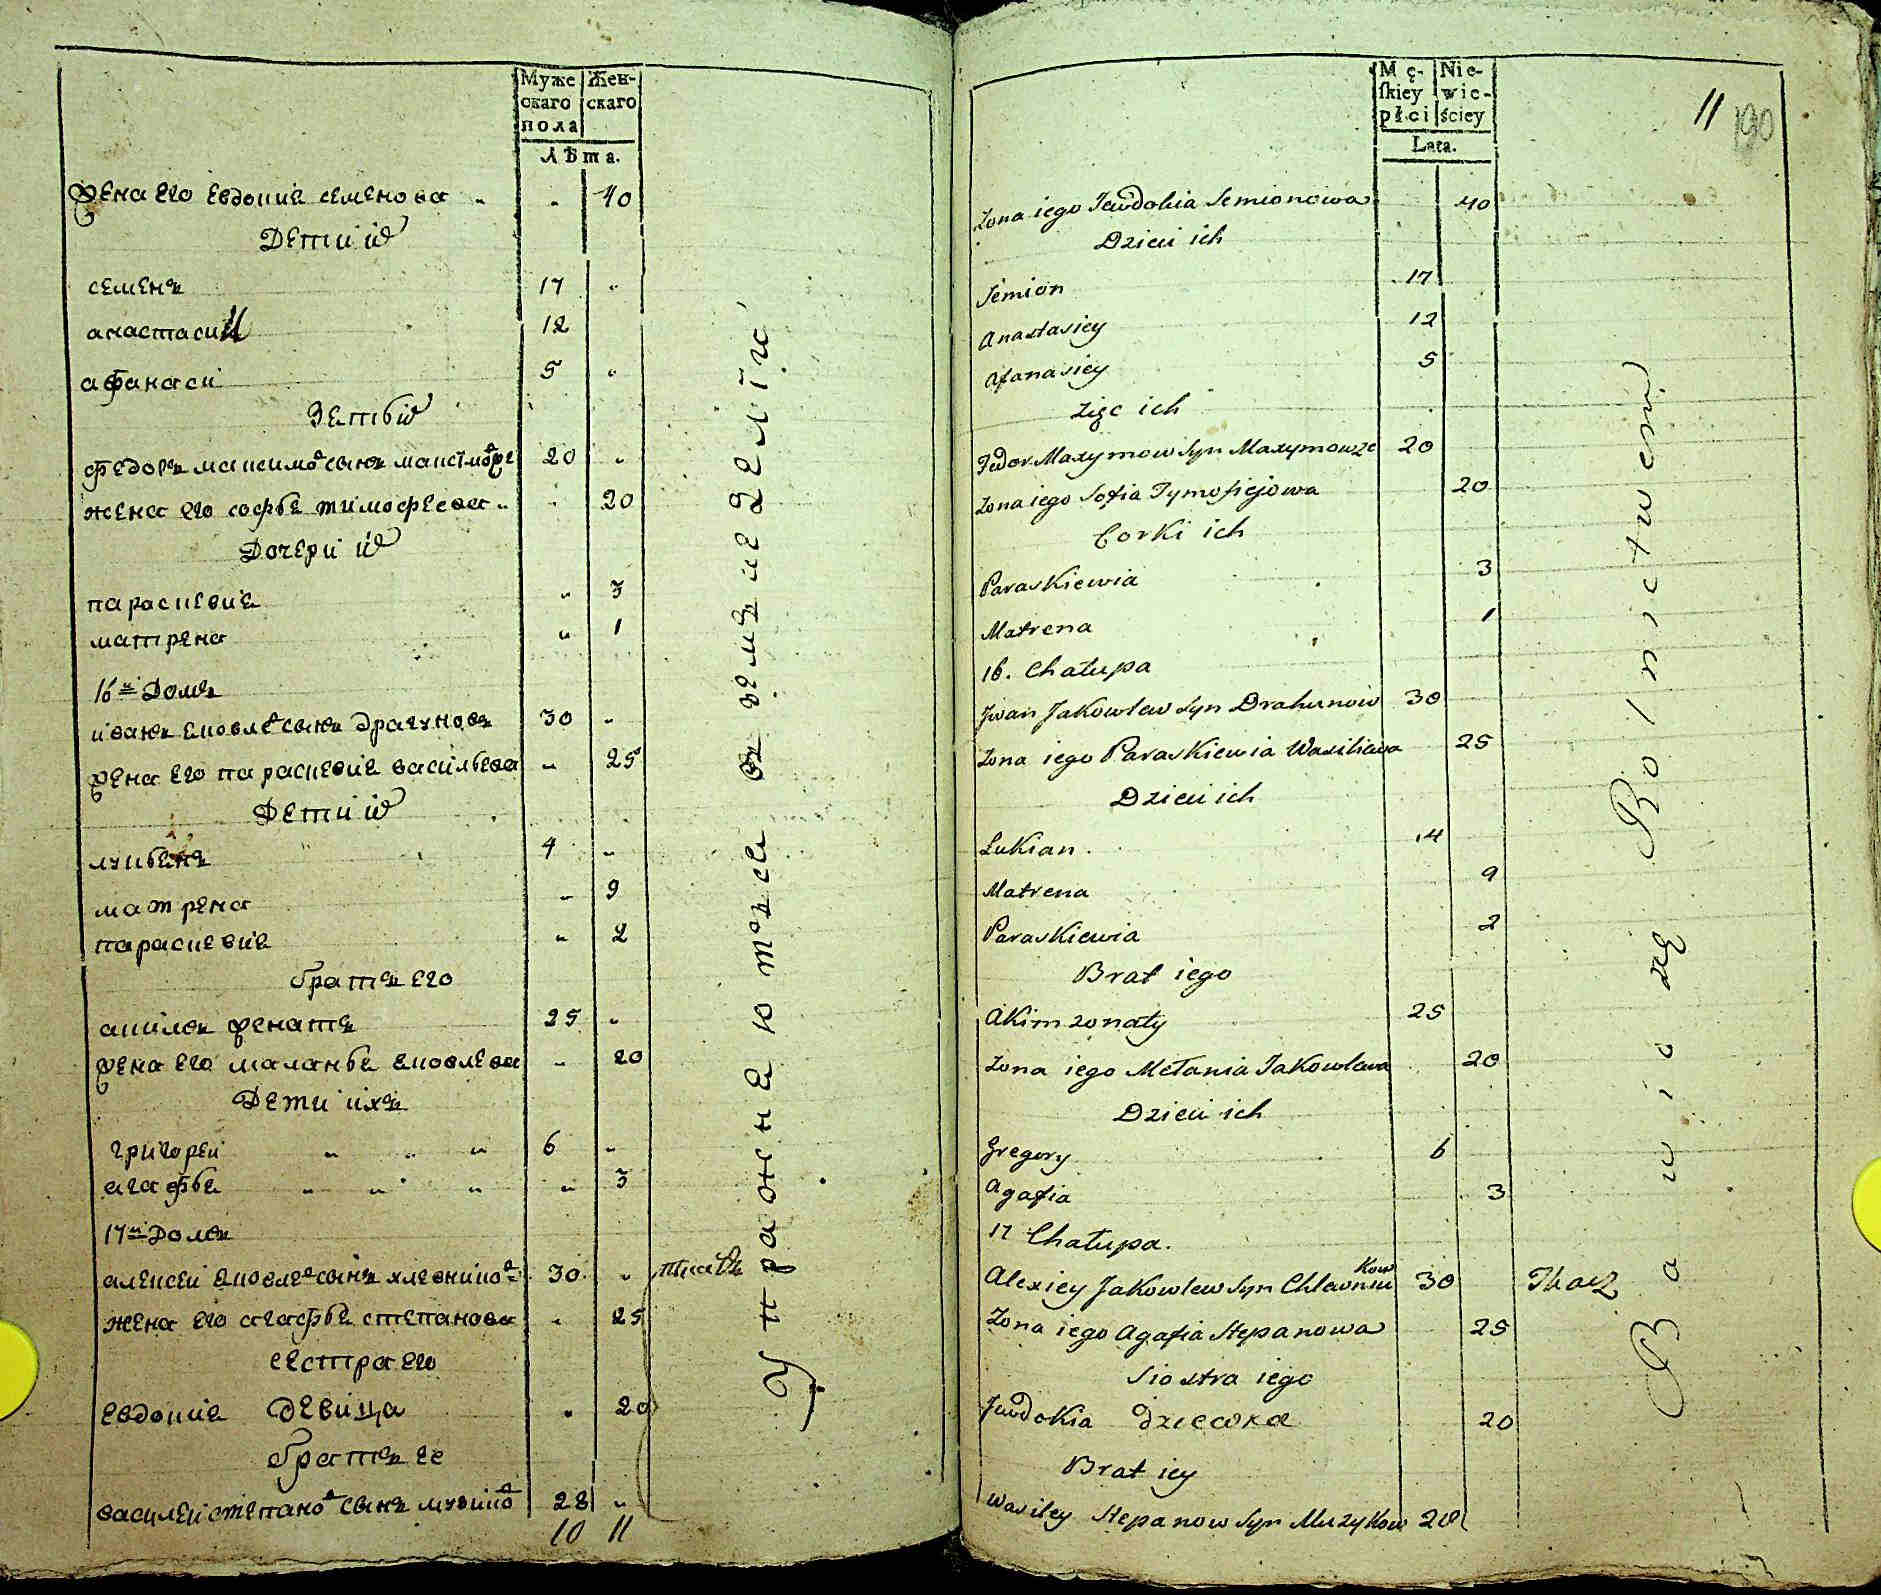 Муже Жен-
скаго скаго
пола
Лѣта.
жена его евдокиѣ семенова „ „ 40
Дети их
семенъ 17 „
анастасии 12
афанаси 5 „
Зеть их
федоръ максимов сынъ максимов 20 „
жена его софьѣ тимофеева „ „ 20
Дочери их
параскевиѣ „ 3
матрена „ 1
16й Домъ
иванъ яковлев сынъ драгуновъ 30 „
жена его параскевиѣ васильева „ 25
Дети их
лукьянъ 4 „
матрена „ 9
параскевиѣ „ 2
братъ его
акимъ женатъ 25 „
жена его маланьѣ яковлева „ 20
Дети ихъ
григореи „ „ „ 6 „
агафьѣ „ „ „ „ 3
17й Домъ
алексеи яковлев сынъ хлевников 30 „ ткачь
жена его агафьѣ степанова „ 25
сестра его
евдокиѣ девица „ 20
братъ ее
василеи степанов сынъ музыков 28 „
10 11
Упражнѣютъся въ земледелїи
Mę- Nie-
skiey wie-
płci ściey
Lata.
11 190
Zona iego Jewdokia Semionowa 40
Dzieci ich
Semion 17
Anastasiey 12
Afanasiey 5
Zięc ich
Fedor Maxymow Syn Maxymowze 20
Zona iego Sofia Tymofiejowa 20
Corki ich
Paraskiewia 3
Matrena 1
16. Chałupa
Jwan Jakowlew Syn Drahunow 30
Zona iego Paraskiewia Wasiliewa 25
Dzieci ich
Lukian 4
Matrena 9
Paraskiewia 2
Brat iego
Akim zonaty 25
Zona iego Mełania Jakowlewa 20
Dzieci ich
Gregory 6
Agafia 3
17 Chałupa.
Alexiey Jakowlew Syn Chlewniu kow 30 Tkacz
Zona iego Agafia Stepanowa 25
Siostra iego
Jewdokia dziewka 20
Brat iey
Wasiley Stepanow Syn Muzykow 28
Bawio się Rolnictwem